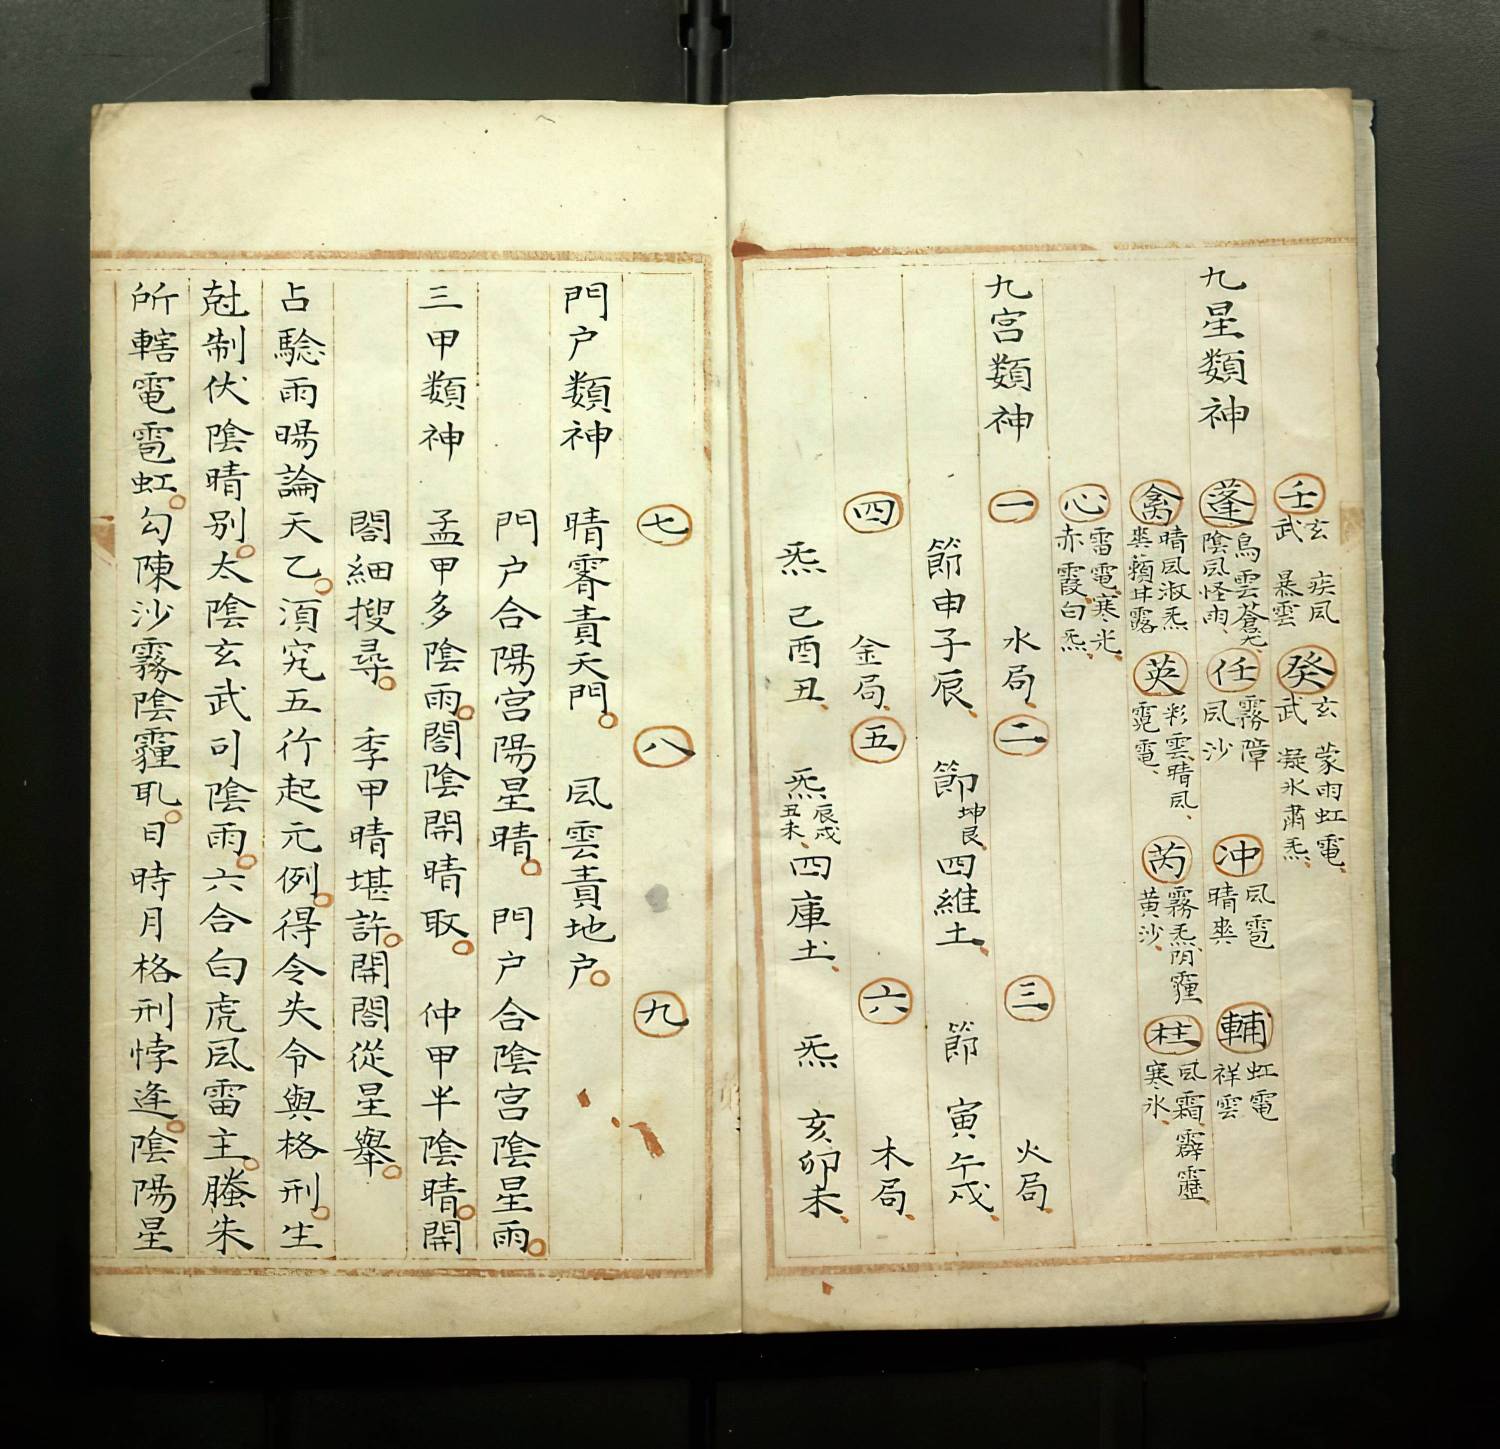 壬 玄武 疾風暴雲 癸 玄武 蒙雨虹電凝氷肅炁
九星類神 蓬 烏雲蒼光陰風怪雨 任 霧障風沙 冲 風雹晴爽 輔 虹電祥雲
禽 晴風淑炁爽籟甘露 英 彩雲晴風霓電 芮 霧炁陰霾黄沙 柱 風霜霹靂寒氷
心 雷電寒光赤霞白炁
九宮類神 一 水局 二 三 火局
節申子辰 節坤艮四維土 節 寅午戌
四 金局 五 六 木局
炁 己酉丑 炁辰戌丑未四庫土 炁 亥卯未
七 八 九
門户類神 晴霽責天門 風雲責地户
門户合陽宮陽星晴 門户合陰宮陰星雨
三甲類神 孟甲多陰雨閤陰開晴取 仲甲半陰晴開
閤細搜尋 季甲晴堪許開閤從星舉
占驗雨暘論天乙須究五行起元例得令失令與格刑生
尅制伏陰晴别太陰玄武司陰雨六合白虎風雷主螣朱
所轄電雹虹勾陳沙霧陰霾耴日時月格刑悖逢陰陽星